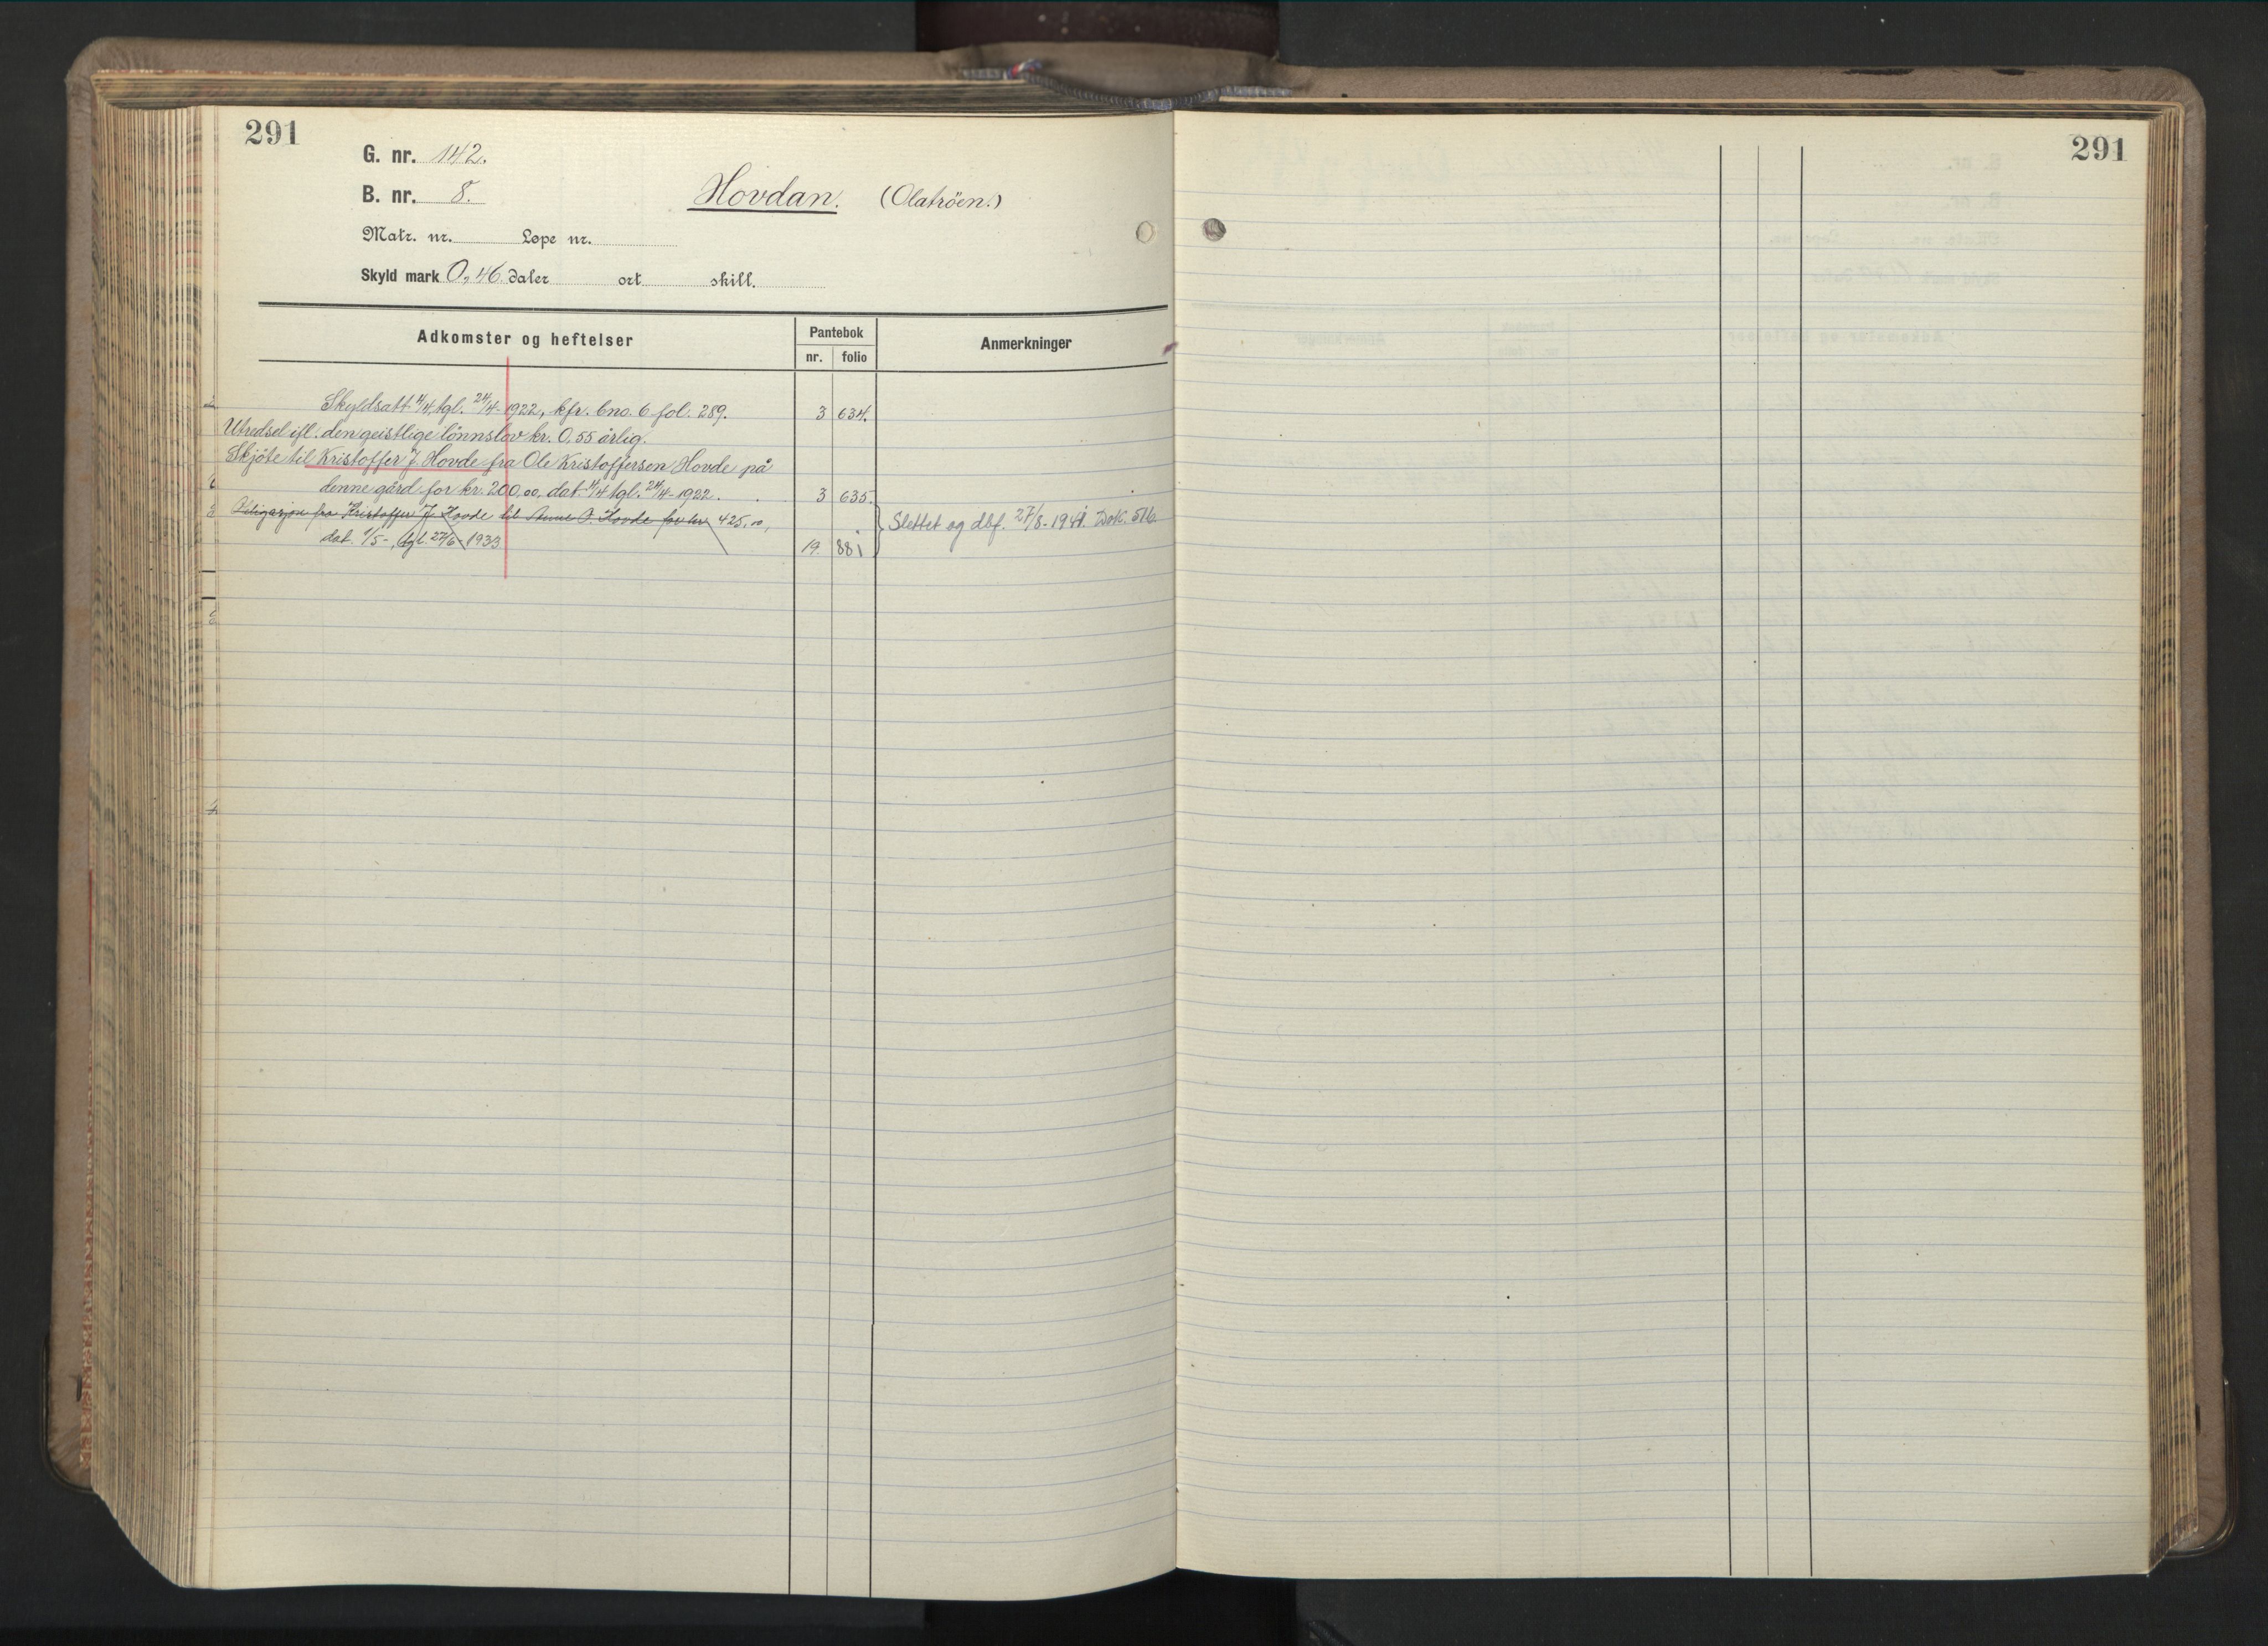 291
G. nr. 142.
B. nr. 8.
Hovdan. (Olatröen.)
Matr. nr. Løpe nr.
Skyld mark 0,46. daler ort skill.
Adkomster og heftelser
Pantebok
nr. folio
Anmerkninger
Skyldsatt 4/4 tgl. 24/4-1922, kfr. bno. 6 fol. 289. 3 634.
Utredsel ifl. den geistlige lönnslov kr. 0,55 årlig.
Skjöte til Kristoffer J. Hovde fra Ole Kristoffersen Hovde på
denne gård for kr. 200,00, dat. 4/4 tgl. 24/4-1922. 3 635.
Obligasjon fra Kristoffer J. Hovde til Anne O. Hovde for kr. 425,00,
dat. 1/5-, tgl. 27/6-1933 19. 881
Slettet og dbf. 27/8-1941. Dok. 516.
291